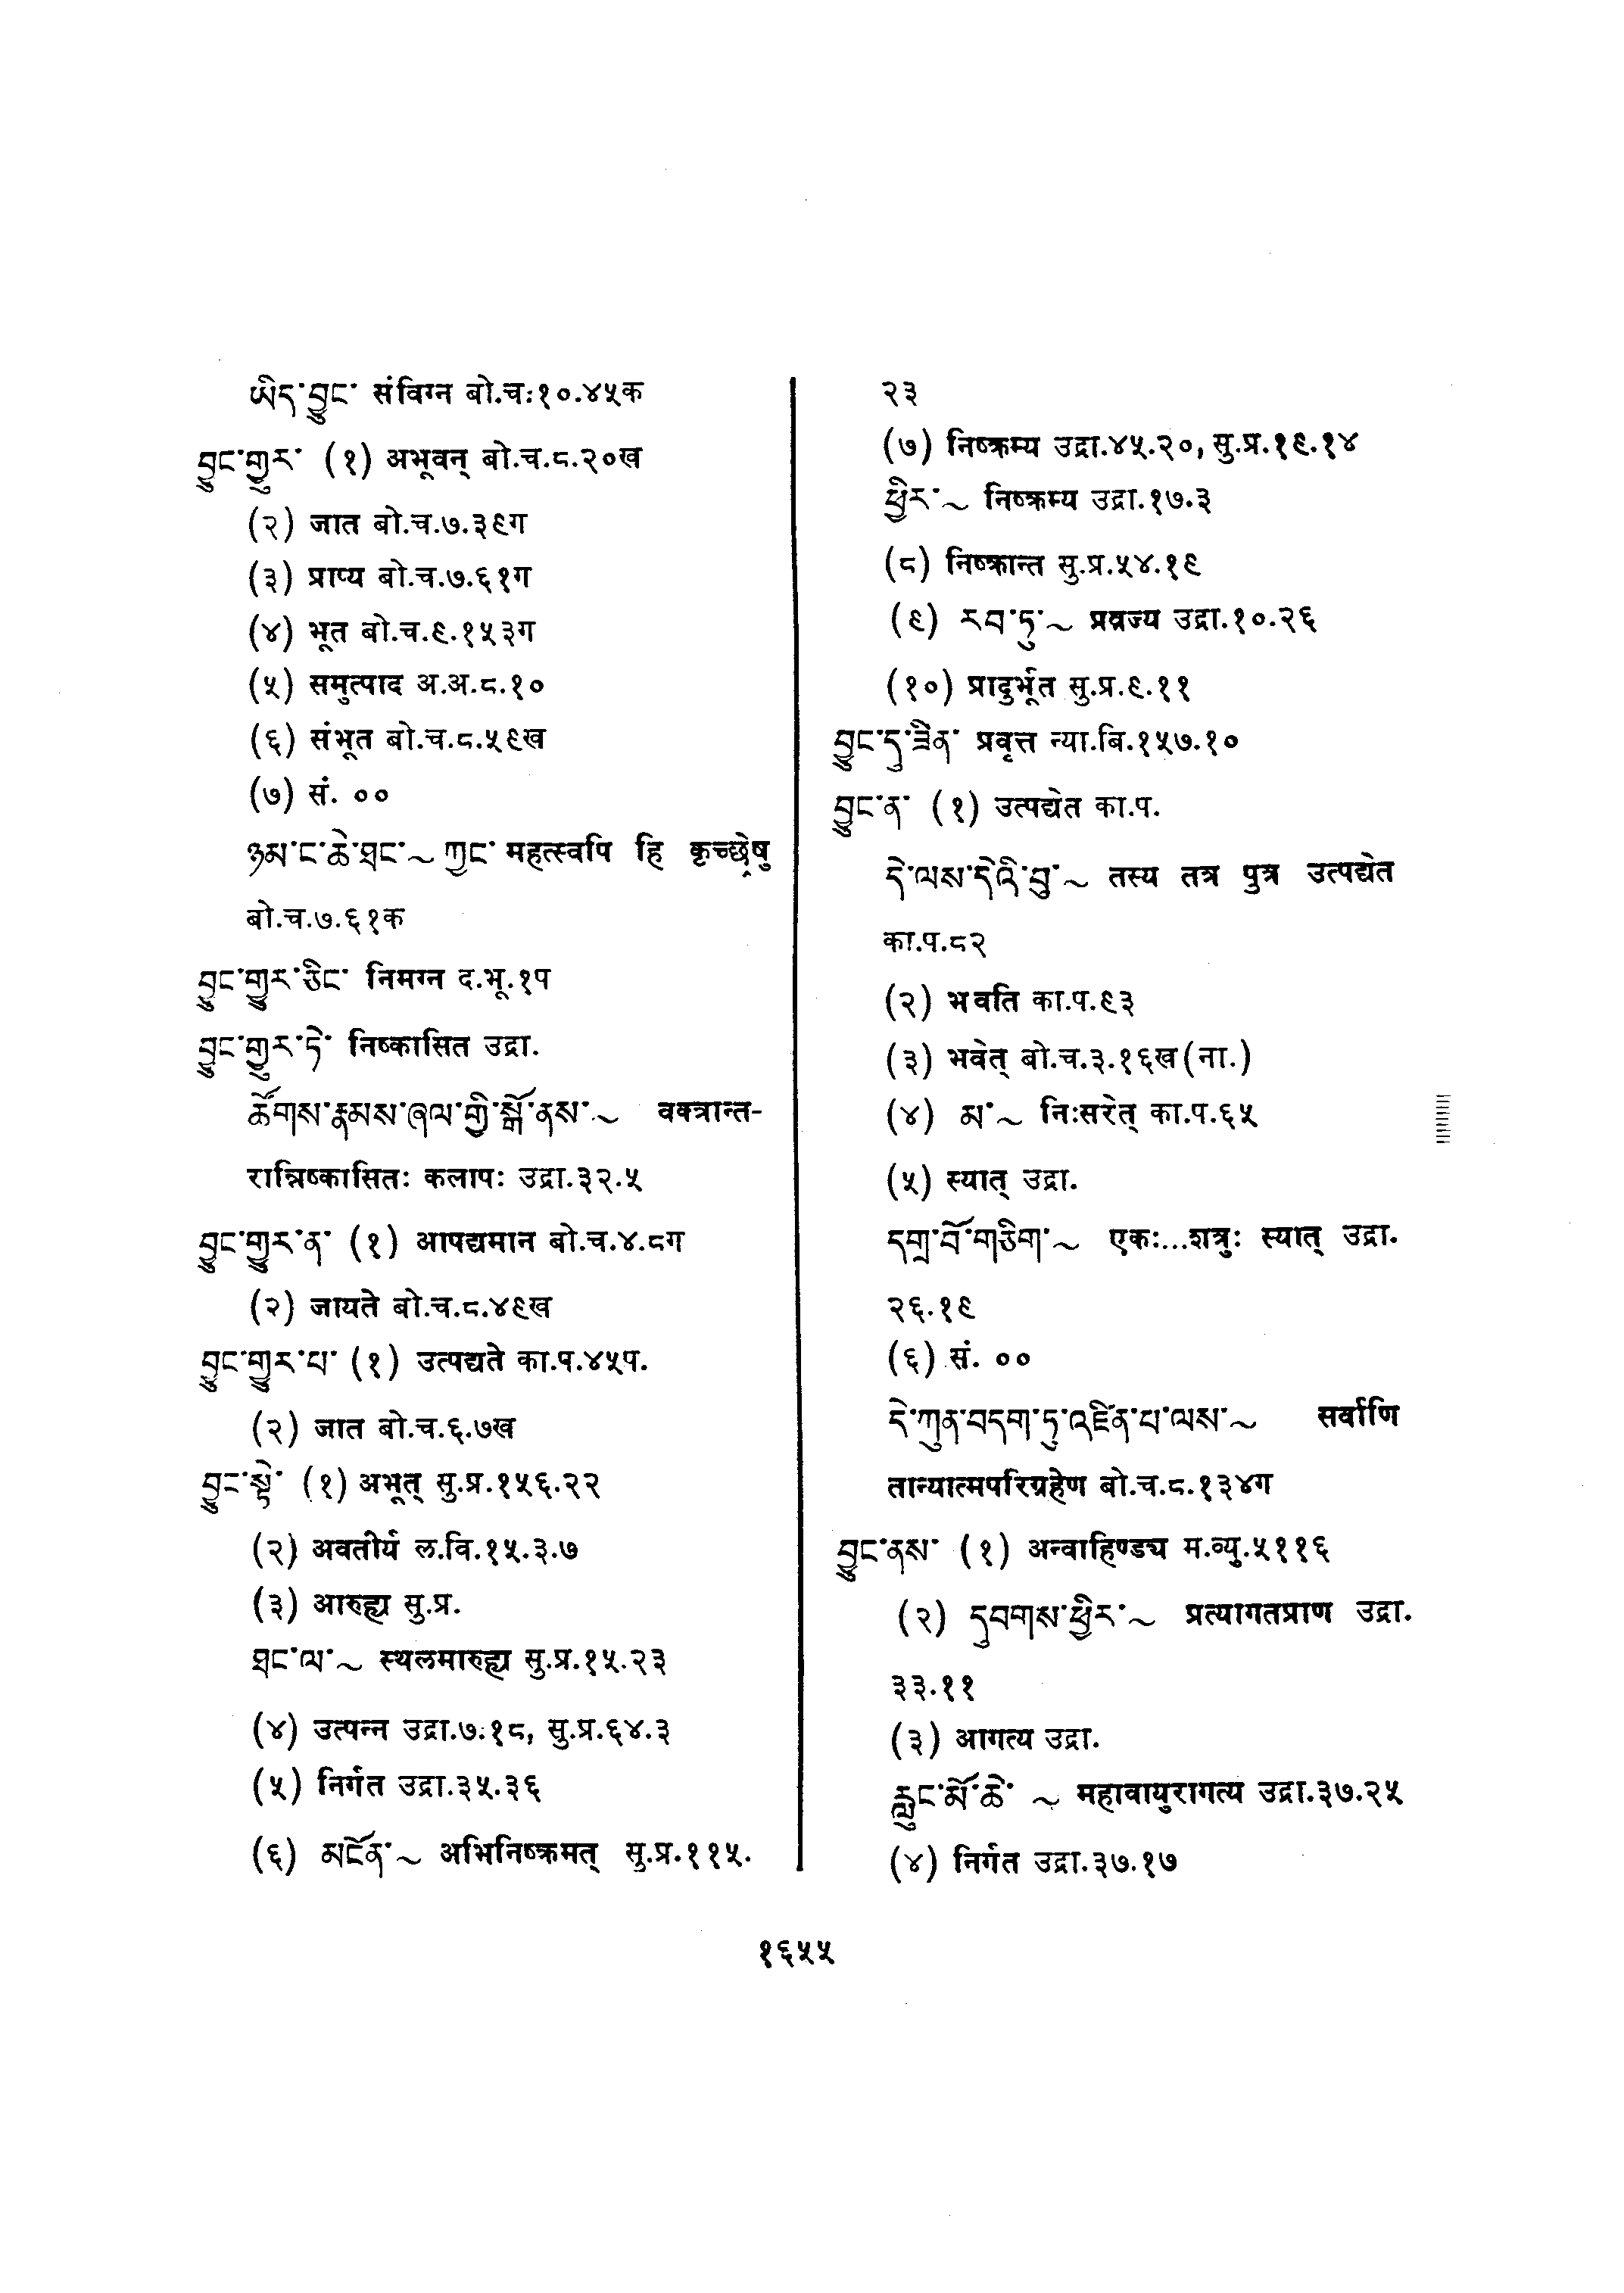 ཡིད་བྱུང་ संविग्न बो.च.१०.४५क
བྱུང་གྱུར་ (१) अभूवन् बो.च.८.२०ख
(२) जात बो.च.७.३९ग
(३) प्राप्य बो.च.७.६१ग
(४) भूत बो.च.९.१५३ग
(५) समुत्पाद अ.अ.८.१०
(६) संभूत बो.च.८.५९ख
(७) सं. ००
ཉམ་ང་ཆེ་ཐང་~ ཀྱང་ महत्स्वपि हि कृच्छ्रेषु
बो.च.७.६१क
བྱུང་གྱུར་ཅིང་ निमग्न द.भू.१प
བྱུང་གྱུར་ཏེ་ निष्कासित उद्रा.
ཚོགས་རྣམས་ཞལ་གྱི་སྒོ་ནས་~ वक्त्रान्त-
रान्निष्कासितः कलापः उद्रा.३२.५
བྱུང་གྱུར་ན་ (१) आपद्यमान बो.च.४.८ग
(२) जायते बो.च.८.४९ख
བྱུང་གྱུར་པ་ (१) उत्पद्यते का.प.४५प.
(२) जात बो.च.६.७ख
བྱུང་སྟེ་ (१) अभूत् सु.प्र.१५६.२२
(२) अवतीर्य ल.वि.१५.३.७
(३) आरुह्य सु.प्र.
ཐང་ལ་~ स्थलमारुह्य सु.प्र.१५.२३
(४) उत्पन्न उद्रा.७.१८, सु.प्र.६४.३
(५) निर्गत उद्रा.३५.३६
(६) མངོན་~ अभिनिष्क्रमत् सु.प्र.११५.
२३
(७) निष्क्रम्य उद्रा.४५.२०, सु.प्र.१९.१४
ཕྱིར་~ निष्क्रम्य उद्रा.१७.३
(८) निष्क्रान्त सु.प्र.५४.१९
(९) རབ་ཏུ་~ प्रव्रज्य उद्रा.१०.२६
(१०) प्रादुर्भूत सु.प्र.९.११
བྱུང་དུ་ཟིན་ प्रवृत्त न्या.बि.१५७.१०
བྱུང་ན་ (१) उत्पद्येत का.प.
དེ་ལས་དེའི་བུ་~ तस्य तत्र पुत्र उत्पद्येत
का.प.८२
(२) भवति का.प.९३
(३) भवेत् बो.च.३.१६ख(ना.)
(४) མ་~ निःसरेत् का.प.६५
(५) स्यात् उद्रा.
དགྲ་བོ་གཅིག་~ एकः...शत्रुः स्यात् उद्रा.
२६.१९
(६) सं. ००
དེ་ཀུན་བདག་ཏུ་འཛིན་པ་ལས་~ सर्वाणि
तान्यात्मपरिग्रहेण बो.च.८.१३४ग
བྱུང་ནས་ (१) अन्वाहिण्ड्य म.व्यु.५११६
(२) དབུགས་ཕྱིར་~ प्रत्यागतप्राण उद्रा.
३३.११
(३) आगत्य उद्रा.
རླུང་མོ་ཆེ་ ~ महावायुरागत्य उद्रा.३७.२५
(४) निर्गत उद्रा.३७.१७
१६५५